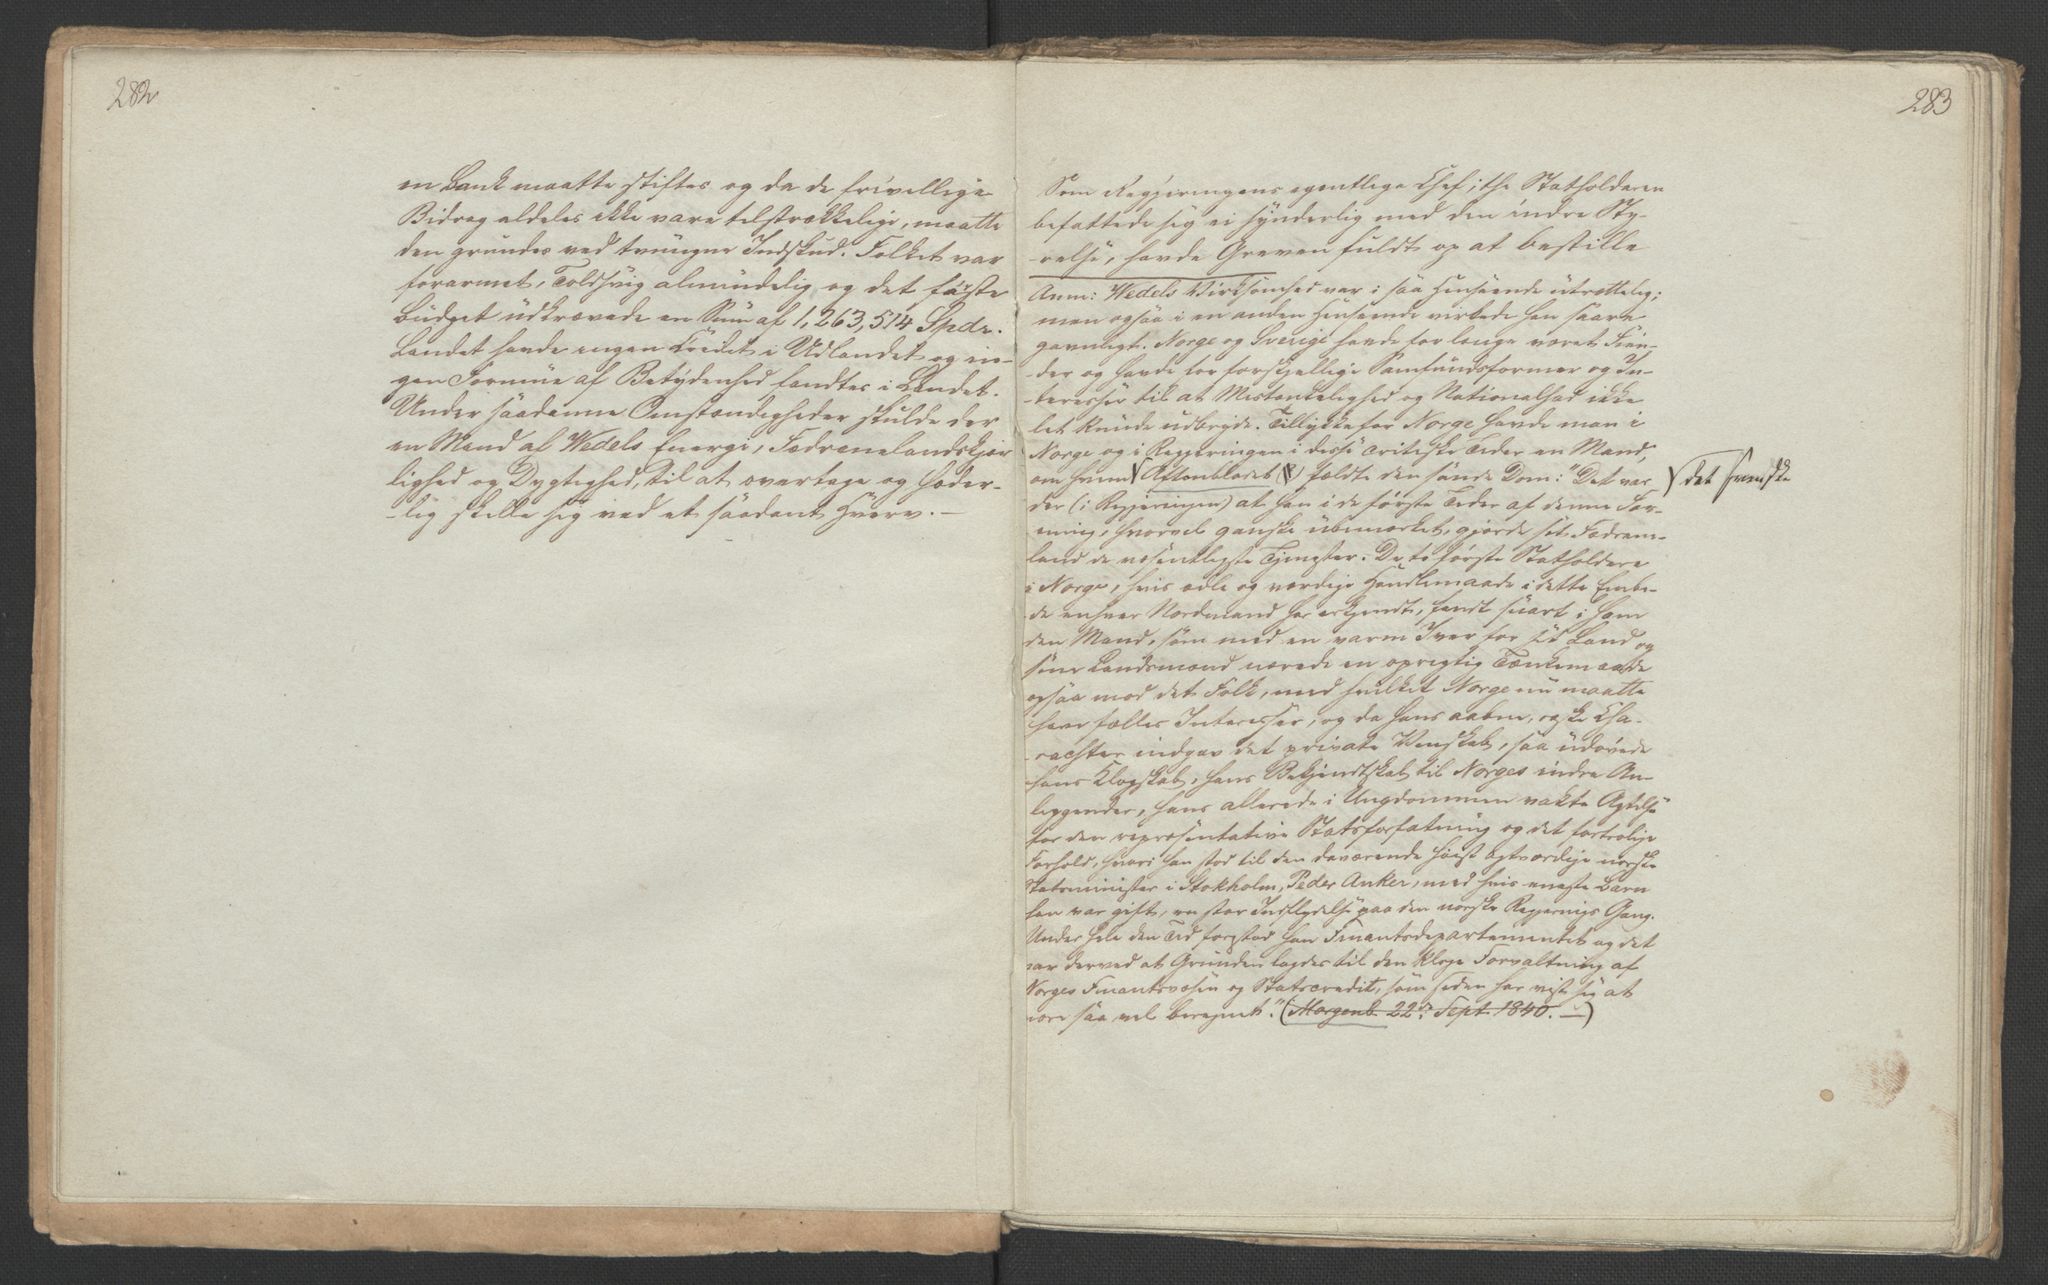 282
en Bank maatte stiftes og da de frivillige
Bidrag aldeles ikke vare tilstrækkelige, maatte
den grundes ved tvungne Indskud. Folket var
forarmet, Toldsvig almindelig og det første
Budget udkrævede en Sum af 1,263,514 Spdr.
Landet havde ingen Credit i Udlandet og in-
gen Formue af Betydenhed fandtes i Landet.
Under saadanne Omstændigheder skulde der
en Mand af Wedels Energi, Fædrenelandskjær
lighed og Dygtighed, til at overtage og hæder-
-lig skille sig ved et saadant Hverv. —
283
Som Regjeringens egentlige Chef; thi Statholderen
befattede sig ei synderlig med den indre Sty-
-relse, havde Greven fuldt op at bestille
Anm: Wedels Virksomhed var i saa Henseende utrættelig;
men ogsaa i en anden Henseende virkede han saare
gavnligt. Norge og Sverige havde for længe været Fien-
-der og havde for forskjellige Samfundsformer og In-
-teresser til at Mistænkelighed og Nationalhad ikke
let kunde udbryde. Tillykke for Norge havde man i
Norge og i Regjeringen i disse critiske Tider en Mand,
om hvem √ Aftonbladet fældte den sande Dom: "Det var √ det svenske
der (i Regjeringen) at han i de første Tider af denne For-
-ening, hvorvel ganske ubemærket, gjorde sit Fædrene-
land de væsentligste Tjenester. De to første Statholdere
i Norge, hvis ædle og værdige Handlemaade i dette Embe-
-de enhver Nordmand har erkjendt, fandt snart i ham
den Mand, som med en varm Iver for sit Land og
sine Landsmænd nærede en oprigtig Tænkemaade
ogsaa mod det Folk, med hvilket Norge nu maatte
have fælles Interesser, og da hans aabne, Cha-
-rachter indgav det private Venskab, saa udøvede
hans Klogskab, hans Bekjendtskab til Norges indre An-
liggender, hans allerede i Ungdommen vakte Agtelse
for den repræsentative Statsforfatning og det fortrolige
Forhold, hvori han stod til den daværende høist agtværdige norske
Statsminister i Stokholm, Peder Anker, med hvis eneste Barn
han var gift, en stor Indflydelse paa den norske Regjerings Gang.
Under hele den Tid forestod han Finantsdepartementet og det
var derved at Grunden lagdes til den kloge Forvaltning af
Norges Finantsvæsen og Statscredit, som siden har vist sig at
være saa vel beregnet." (Morgenb. 22de Sept 1840. —)